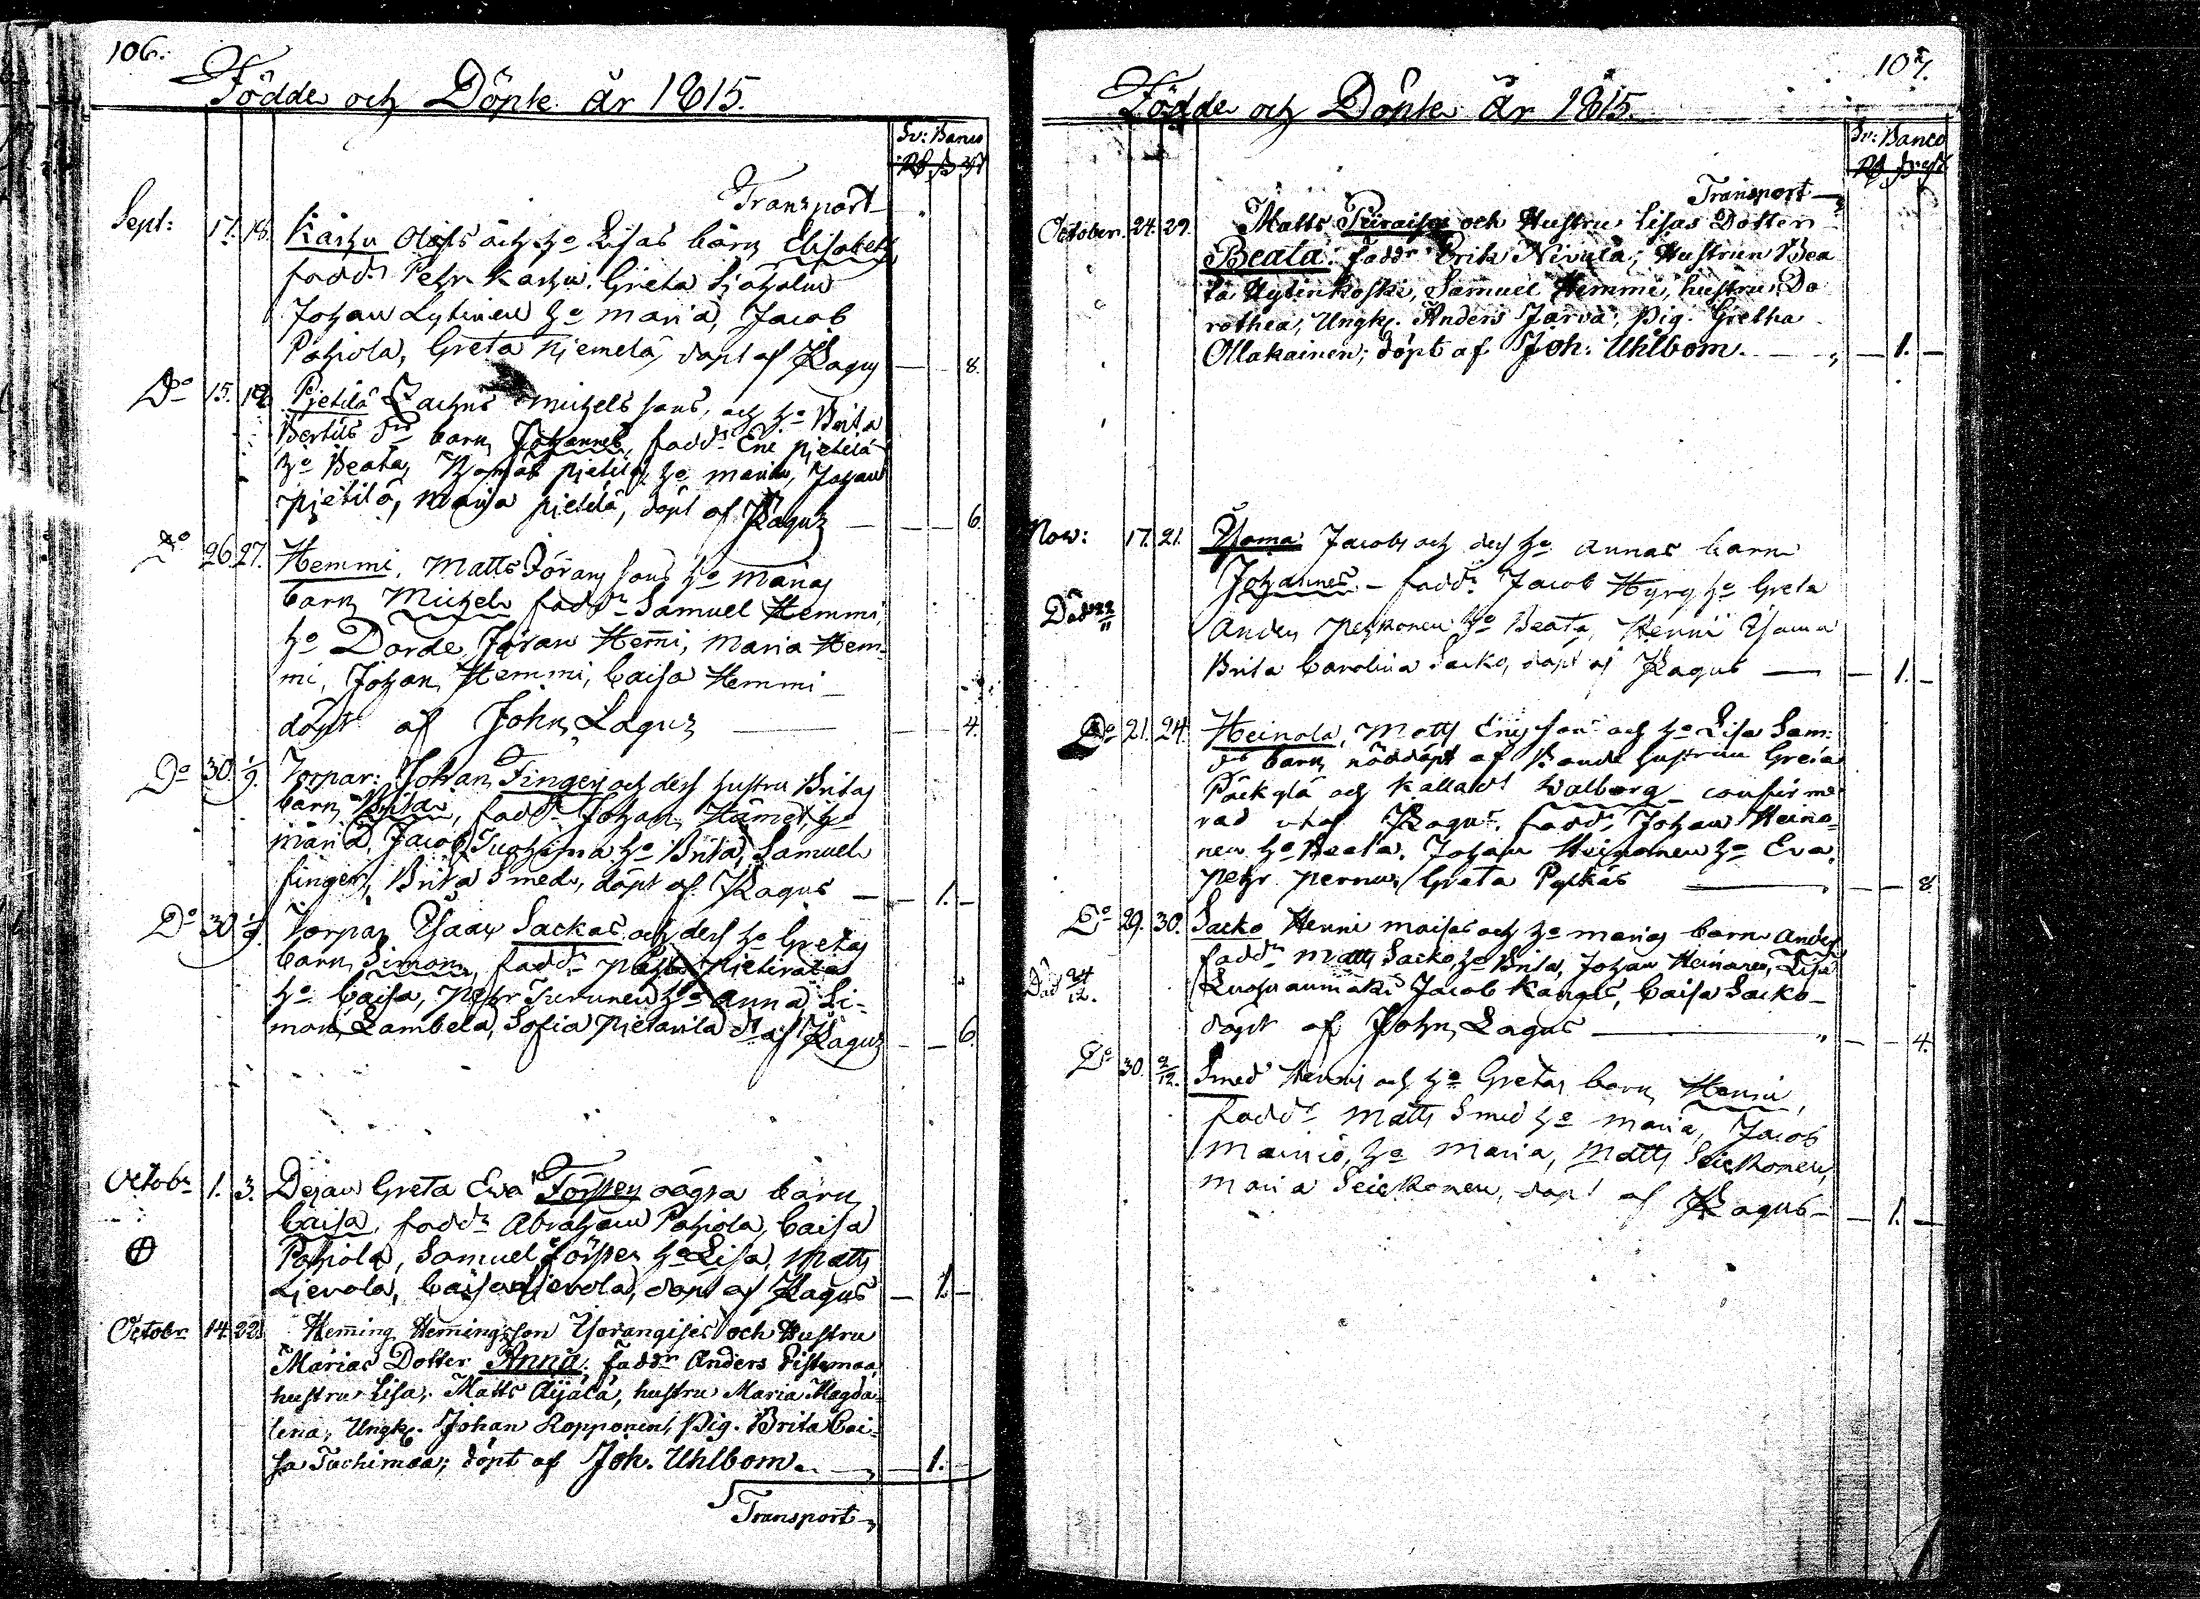 106.
Födde och Döpte år 1815.
Sv: Banco
Transport
Sept: 17. 18. Karhu Olofs och ho Lisas barn Elisabeth
fadd: Petr Karhu, Greta Sjöholm
Johan Lytinen ho Maria, Jacob
Pahjola, Greta Niemelä, döpt af Lagus — — 8.
Do 15. 18 Pjetilä Zachris Michelssons, och ho Brita
Bertils dr barn Johannes, fadd: Eric Pjetilä
ho Beata, Thomas Pjetilä, ho Maria, Johan
Pjetilä, Maria Pjetilä, döpt af Lagus — — — 6
Do 26 27. Hemmi, Matts Jöransons ho Marias
barn Michel, fadd: Samuel Hemmi,
ho Darde, Jöran Hemi, Maria Hem-
mi, Johan Hemmi, Caisa Hemmi —
döpt af John Lagus — — — 4.
Do 30. 1/9. Torpar: Johan Finger och dess hustru Britas
barn Brita, fadd: Johan ho
Maria, Jacob ho Brita, Samuel
finger, Brita Smed, döpt af Lagus — — 1. —
Do 30 1/9. Torpar Isaac Sackos och dess ho Gretas
barn Simon, fadd:
ho Caisa, Petr Turunen ho Anna, Si-
mon Lambela, Sofia Pietarila dt af Lagus — — 6.
Octobr 1. 3. Dejan Greta Eva Försten oägta barn
Caisa, fadd: Abraham Pahjola, Caisa
Pahjola, Samuel Försten ho Lisa, Matts
Lievola, Caisa Lievola, döpt af Lagus — 1. —
Octobr. 14. 22. Heming Hemingsson Yorangises och Hustru
Marias Dotter Anna; Faddr Anders Pistemaa,
hustru Lisa; Matts Äijälä, hustru Maria Magda-
lena; Ungk. Johan Ropponen, Pig. Brita Cai-
sa Tachimaa; döpt af Joh. Uhlbom. — — 1. —
Transport
107.
Födde och Döpte år 1815.
Sv: Banco
Transport —
October. 24. 29. Matts Piiraises och Hustru Lisas Dotter
Beata; Faddr Erik Nivula; Hustrun Bea
ta Kylinkoski, Samuel Hemmi, hustru Do
rothea; Ungk. Anders Järvä, Pig. Gretha
Ollakainen; döpt af Joh: Uhlbom. — — 1. —
Nov: 17. 21. Jacobs och dess ho Annas barn
Johannes — fadd: Jacob Hyry ho Greta
Död 22/11
Anders Peckonen ho Beata, Henric
Brita Carolina Sacko, döpt af Lagus — — 1. —
Do 21. 24. Heinola, Matts Ericson och ho Lisa Sam:
drs barn nöddöpt af Bonde hustrun Greta
och kallad Walborg — confirme
rad utaf Lagus, fadd: Johan Heino-
nen ho Beata, Johan Heinonen ho Eva,
Petr Pernu, Greta Pyckäs — — — 8
Do 29. 30. Sacko Henric Maisas och ho Marias barn Anders
fadd: Matts Sacko ho Brita, Johan Heinonen, Lisa
Död 24/12.
Luosuanmäki Jacob Kangas, Caisa Sacko —
döpt af John Lagus — — — 4.
Do 30. 2/12. Smed Henrics och ho Gretas barn Henric,
fadd: Matts Smed ho Maria, Jacob
Mainio, ho Maria, Matts Seickonen,
Maria Seickonen, döpt af Lagus — — 1. —